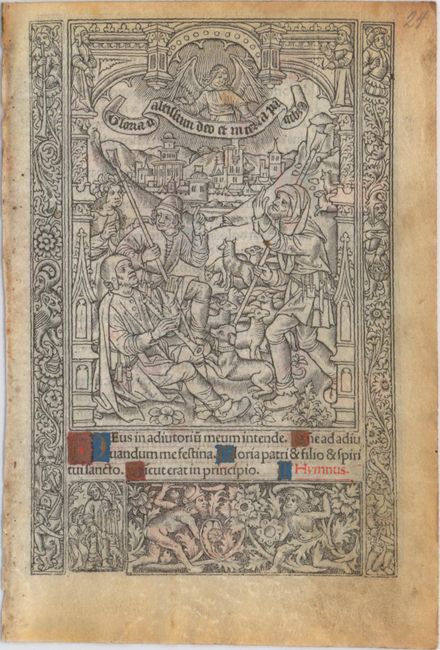 24
Gloria i altissimis deo et in terra pa
DEus in adiutoriũ meum intende. Dñe ad adiu
uandum me festina. Gloria patri & filio & spiri
tui sancto. Sicut erat in principio. Hymnus.